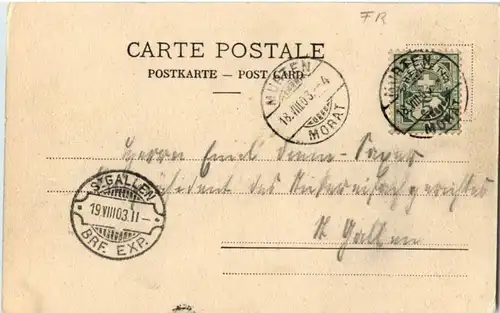 FR
CARTE POSTALE
POSTKARTE — POST CARD
MURTEN
18.VIII.03.-4
MORAT
MURTEN
MORAT
Herrn Emil
des
St. Gallen
ST GALLEN
19.VIII.03.11-
BRF. EXP.